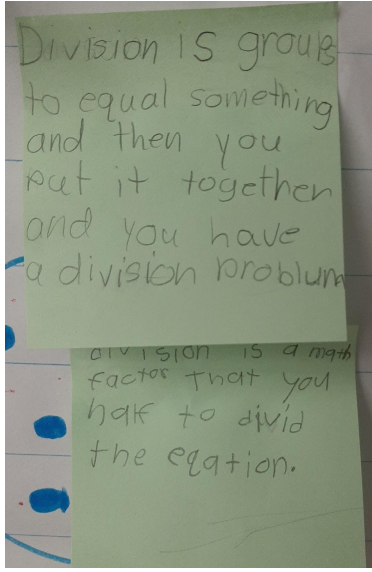 Division is groups
to equal something
and then you
put it together
and you have
a division problum
division is a math
factor that you
haf to divid
the eqation.